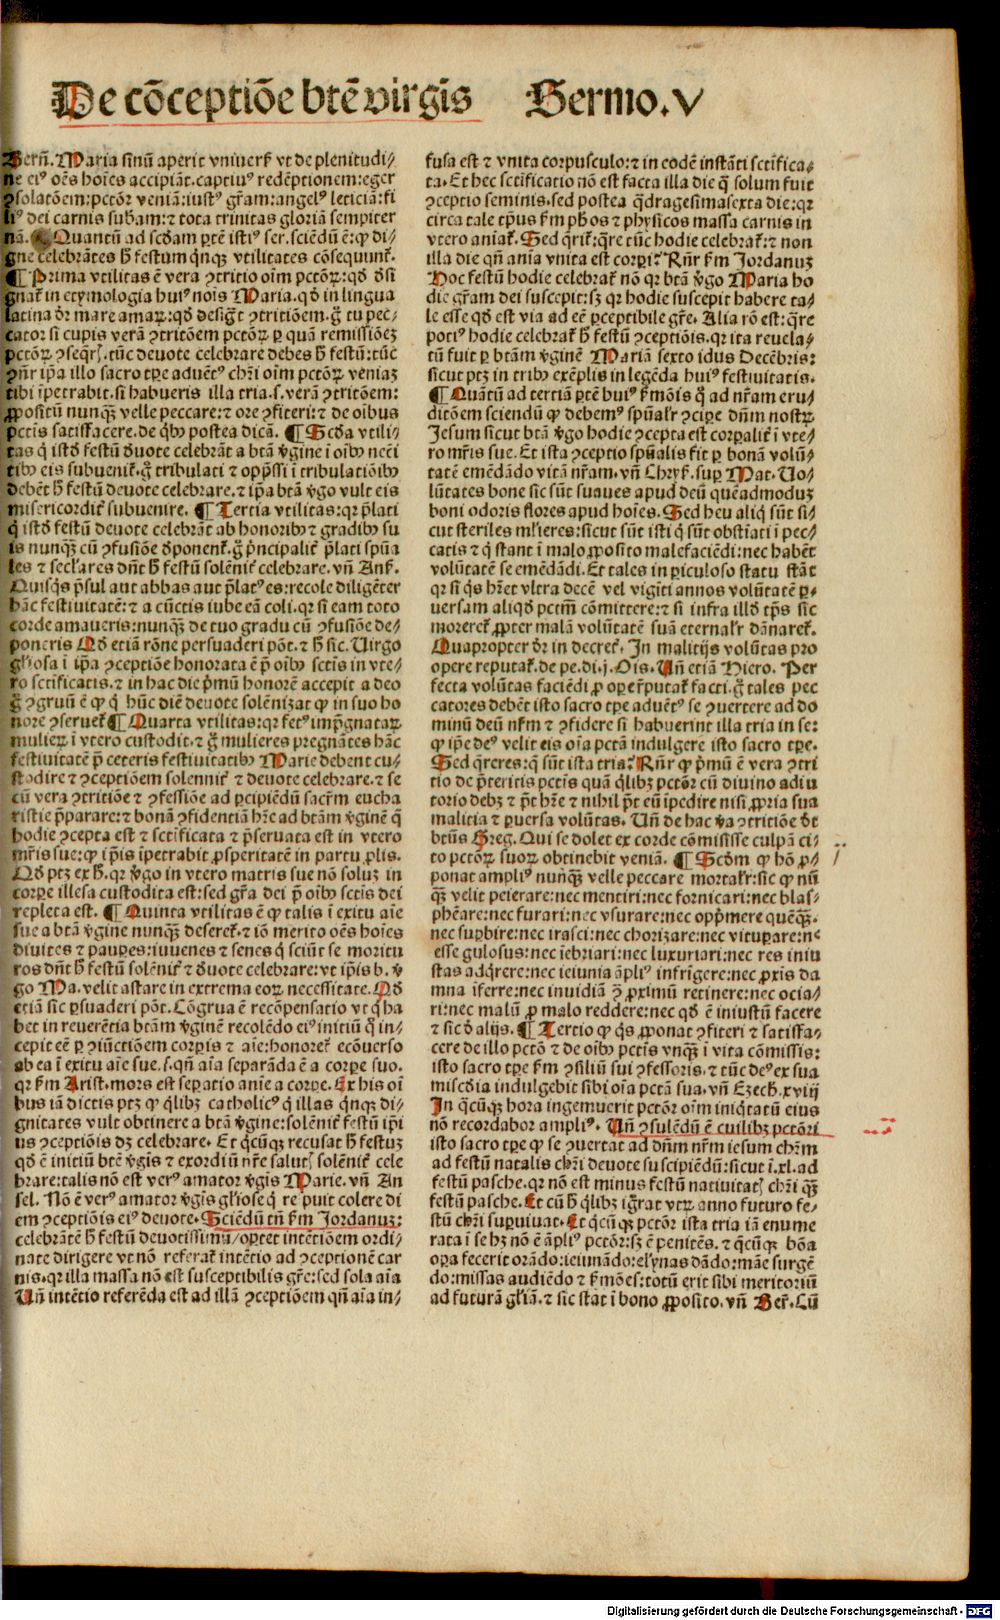 De cōceptiōe btē virgīs Sermo.V
Bern̄. Maria sinū aperit vniuerſ vt de plenitudi⸗
ne eiꝰ oēs hoīes accipiāt. captiuꝰ redēptionem: eger
ꝯsolatōem: pctōr veniā: iustꝰ grāꝫ: angelꝰ leticiā: fi
liꝰ dei carnis subam̄: ⁊ tota trinitas gloriā sempiter
nā. Quantū ad scdam ptē istiꝰ ser. sciēdū ē: ꝙ di⸗
gne celebrātes h̄ festum qnqꝫ vtilitates cōsequunt̄.
¶ Prima vtilitas ē vera ꝯtritio oīm pctōꝝ: qd̄ dsi
gnat̄ in etymologia huiꝰ nois Maria. qd̄ in lingua
latina dr̄ mare amaꝝ: qd̄ desigt̄ ꝯtritōem. ḡ tu pec⸗
cator si cupis verā ꝯtritōem pctōꝝ ꝑ quā remissiōeꝫ
pctōꝝ ꝯseqr̄. tūc deuote celebrare debes h̄ festū: tūc
ꝯn̄r ip̄a illo sacro tꝑe aduētꝰ chr̄i oīm pctōꝝ veniaꝫ
tibi īpetrabit. si habueris illa tria. s. verā ꝯtritōem:
ꝓpositū nunqꝫ velle peccare: ⁊ ore ꝯfiteri: ⁊ de oībus
pctīs satisfacere. de qbꝰ postea dicā. ¶ Scd̄a vtili⸗
tas q̄ istd̄ festū d̄uote celebrāt a btā v̄gine ī oībꝰ neci
tibꝰ eis subuenit̄. ḡ tribulati ⁊ opp̄ssi ī tribulatiōibꝰ
debēt h̄ festū deuote celebrare. ⁊ ip̄a btā v̄go vult eis
misericordit̄ subuenire. ¶ Tertia vtilitas: qꝛ p̄lati
q̄ istd̄ festū deuote celebrāt ab honoribꝰ ⁊ gradibꝰ su
is nunqꝫ cū ꝯfusiōe d̄ponent̄. ḡ p̄ncipalit̄ p̄lati spūa
les ⁊ sectlares dn̄t h̄ festū solēnit̄ celebrare. vn̄ Anſ.
Quisqs p̄sul aut abbas aut p̄latꝰ es: recole diligēter
hāc festiuitatē: ⁊ a cūctis iube eā coli. qꝛ si eam toto
corde amaueris: nunqꝫ de tuo gradu cū ꝯfusiōe de⸗
poneris Qd̄ etiā rōne persuaderi pōt. ⁊ h̄ sic. Uirgo
gl̄iosa ī ip̄a ꝯceptiōe honorata ē p̄ oībꝰ sctīs in vte⸗
ro sctificatis. ⁊ in hac die p̄mū honorē accepit a deo
ḡ ꝯgruū ē ꝙ q̄ hūc diē deuote solēnizat ꝙ in suo ho
nore ꝯseruet̄ ¶ Quarta vtilitas: qꝛ fetꝰ imp̄gnataꝝ
mulieꝝ ī vtero custodit. ⁊ ḡ mulieres pregnātes hāc
festiuitatē p̄ ceteris festiuitatibꝰ Marie debent cu⸗
stodire ⁊ ꝯceptiōem solennit̄ ⁊ deuote celebrare. ⁊ se
cū vera ꝯtritiōe ⁊ ꝯfessiōe ad ꝑcipiēdū sacrm̄ eucha
ristie p̄parare: ⁊ bonā ꝯfidentiā hr̄e ad btām v̄ginē ꝙ
hodie ꝯcepta est ⁊ sctificata ⁊ p̄seruata est in vtero
mr̄is sue: ꝙ ip̄is īpetrabit ꝓsperitatē in partu ꝓlis.
Qd̄ ptꝫ ex h̄. qꝛ v̄go in vtero matris sue nō soluꝫ in
corpe illesa custodita est: sed gr̄a dei p̄ oībꝰ sctis dei
repleta est. ¶ Quinta vtilitas ē ꝙ talis ī exitu aīe
sue a btā v̄gine nunqꝫ deseret̄. ⁊ iō merito oēs hoīes
diuites ⁊ pauꝑes: iuuenes ⁊ senes q̄ sciūt se moritu
ros dn̄t h̄ festū solēnit̄ ⁊ d̄uote celebrare: vt ip̄is b. v̄
go Ma. velit astare in extrema eoꝝ necessitate. Qd̄
etiā sic ꝑsuaderi pōt. Cōgrua ē recōpensatio vt q̄ ha
bet in reuerētia btām v̄ginē recolēdo eiꝰ initiū q̄ in⸗
cepit eē ꝑ ꝯiūctiōem corpis ⁊ aīe: honoret̄ ecōuerso
ab ea ī exitu aīe sue. s. qn̄ aīa separāda ē a corpe suo.
qꝛ km̄ Arist. mors est sepatio anīe a corpe. Ex his oī
bus iā dictis ptꝫ ꝙ q̄libꝫ catholicꝰ q̄ illas qnqꝫ di⸗
gnitates vult obtinere a btā v̄gine: solēnit̄ festū ip̄i
us ꝯceptiōis dꝫ celebrare. Et q̄cūqꝫ recusat h̄ festuꝫ
qd̄ ē initiū btē v̄gis ⁊ exordiū nr̄e salutꝭ solēnit̄ cele
brare: talis nō est verꝰ amator v̄gis Marie. vn̄ An
sel. Nō ē verꝰ amator v̄gis gl̄iose q̄ respuit colere di
em ꝯceptiōis eiꝰ deuote. Sciēdū tn̄ km̄ Jordanuꝫ:
celebrātē h̄ festū deuotissimū/ oꝑtet intētiōem ordi⸗
nate dirigere vt nō referat̄ intētio ad ꝯceptionē car
nis. qꝛ illa massa nō est susceptibilis gr̄e: sed sola aīa
Un̄ intētio referēda est ad illā ꝯceptiōem qn̄ aīa in⸗
fusa est ⁊ vnita corpusculo: ⁊ in eodē instāti sctifica⸗
ta. Et hec sctificatio nō est facta illa die q̄ solum fuit
ꝯceptio seminis. sed postea q̄dragesimasexta die: qꝛ
circa tale tp̄us km̄ phos ⁊ physicos massa carnis in
vtero aniat̄. Sed qrit̄: qre tūc hodie celebrat̄: ⁊ non
illa die qn̄ anīa vnita est corpi? Rn̄r km̄ Jordanuꝫ
Hoc festū hodie celebrat̄ nō qꝛ btā v̄go Maria ho
die grām dei suscepit: sꝫ qꝛ hodie suscepit habere ta⸗
le esse qd̄ est via ad eē ꝑceptibile gr̄e. Alia rō est: qre
potiꝰ hodie celebrat̄ h̄ festū ꝯceptiōnis. qꝛ ita reuela⸗
tū fuit ꝑ btām v̄ginē Mariā sexto idus Decēbris:
sicut ptꝫ in tribꝰ exēplis in legēda huiꝰ festiuitatis.
¶ Quātū ad tertiā ptē huiꝰ ẜmōis q̄ ad nr̄am eru⸗
ditōem sciendū ꝙ debemꝰ spūalr̄ ꝯciꝑe dn̄m nostꝝ
Jesum sicut btā v̄go hodie ꝯcepta est corꝑalit̄ ī vte⸗
ro mr̄is sue. Et ista ꝯceptio spūalis fit ꝑ bonā volū⸗
tatē emēdādo vitā nr̄am. vn̄ Chryſ. suꝑ Mat. Uo⸗
lūtates bone sic sūt suaues apud deū quēadmoduꝫ
boni odoris flores apud hoīes. Sed heu aliq̄ sūt si⸗
cut steriles mlīeres: sicut sūt isti q̄ sūt obstīati ī pec⸗
catis ⁊ q̄ stant ī malo ꝓposito malefaciēdi: nec habēt
volūtatē se emēdādi. Et tales in ꝑiculoso statu stāt
qꝛ si q̄s hr̄et vltra decē vel vigīti annos volūtatē ꝑ⸗
uersam aliqd̄ pctm̄ cōmittere: ⁊ si infra illd̄ tp̄s sic
moreret̄ ꝓpter malā volūtatē suā eternalr̄ dānaret̄.
Quapropter dr̄ in decret̄. In malicijs volūtas pro
opere reputat̄. de pe. di. j. Ois. Un̄ etiā Hiero. Per
fecta volūtas faciēdi ꝓ oꝑe r̄putat̄ facti. ḡ tales pec
catores debēt isto sacro tꝑe aduētꝰ se ꝯuertere ad do
minū deū nr̄m ⁊ ꝯfidere si habuerint illa tria in se:
ꝙ ip̄e deꝰ velit eis oīa pctā indulgere isto sacro tꝑe.
Sed qreres: q̄ sūt ista tria? Rn̄r ꝙ p̄mū ē vera ꝯtri
tio de p̄teritis pctīs quā q̄libꝫ pctōr cū diuino adiu
torio debꝫ ⁊ pt̄ hr̄e ⁊ nihil pt̄ eū īpedire nisi ꝓpria sua
malitia ⁊ ꝑuersa volūtas. Un̄ de hac v̄a ꝯtritiōe dt̄
btūs Greg. Qui se dolet ex corde cōmisisse culpā ci⸗
to pctōꝝ suoꝝ obtinebit veniā. ¶ Scd̄m ꝙ hō ꝓ⸗
ponat ampliꝰ nunqꝫ velle peccare mortalr̄: sic ꝙ nū
qꝫ velit peierare: nec mentiri: nec fornicari: nec blas⸗
phēare: nec furari: nec vsurare: nec opp̄mere quēqꝫ.
nec suꝑbire: nec irasci: nec chorizare: nec vituꝑare: nec
esse gulosus: nec īebriari: nec luxuriari: nec res iniu
stas adqrere: nec ieiunia āpliꝰ infrigere: nec ꝓxis da
mna īferre: nec inuidiā ꝯ ꝓximū retinere: nec ocia⸗
ri: nec malū ꝓ malo reddere: nec qd̄ ē iniustū facere
⁊ sic d̄ alijs. ¶ Tertio ꝙ q̄s ꝓponat ꝯfiteri ⁊ satisfa⸗
cere de illo pctō ⁊ de oībꝰ pctīs vnqꝫ ī vita cōmissis:
isto sacro tꝑe km̄ ꝯsiliū sui ꝯfessoris. ⁊ tūc deꝰ ex sua
miscd̄ia indulgebit sibi oīa pctā sua. vn̄ Ezech. xviij
In q̄cūqꝫ hora ingemuerit pctōr oīm iniqtatū eius
nō recordabor ampliꝰ. Un̄ ꝯsulēdū ē cuilibꝫ pctōri
isto sacro tꝑe ꝙ se ꝯuertat ad dn̄m nr̄m iesum chr̄m
ad festū natalis chr̄i deuote suscipiēdū: sicut ī. xl. ad
festū pasche. qꝛ nō est minus festū natiuitatꝭ chr̄i qꝫ
festū pasche. Et cū h̄ q̄libꝫ igr̄at vtꝝ anno futuro fe⸗
stū chr̄i suꝑuiuat. Et q̄cūqꝫ pctōr ista tria iā enume
rata ī se hꝫ nō ē āpliꝰ pctōr: sꝫ ē penitēs. ⁊ q̄cūqꝫ bōa
oꝑa fecerit orādo: ieiunādo: elynas dādo: mane surgē
do: missas audiēdo ⁊ ẜmōes: totū erit sibi meritoriū
ad futurā gl̄iā. ⁊ sic stat ī bono ꝓposito. vn̄ Ber̄. Cū
Digitalisierung gefördert durch die Deutsche Forschungsgemeinschaft - DFG